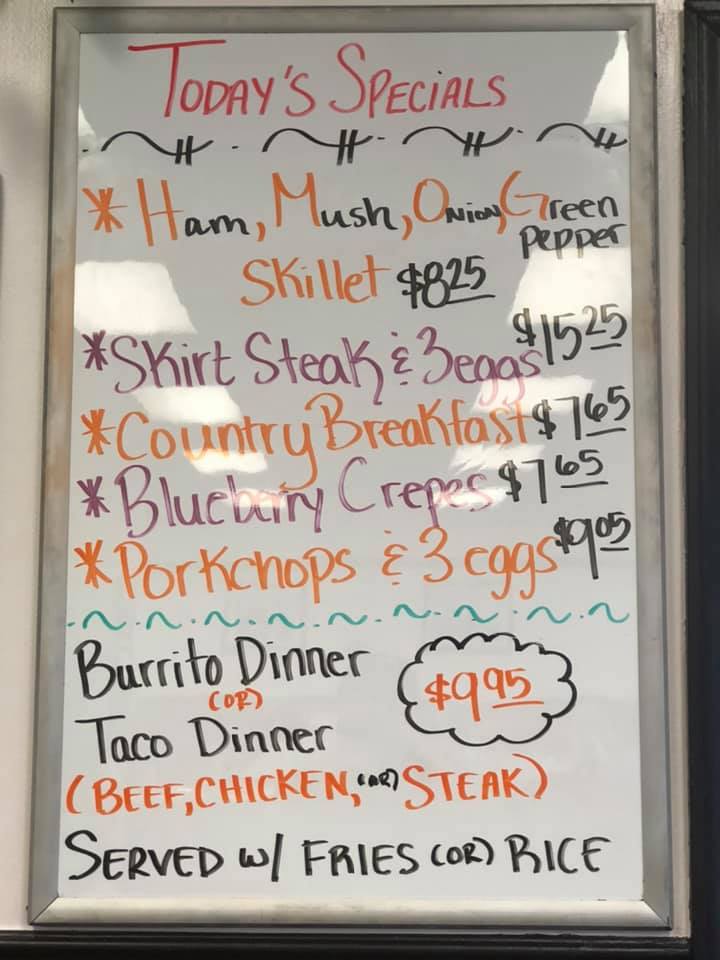 TODAY'S SPECIALS
* Ham, Mush, Onion, Green
Pepper
Skillet $8.25
* Skirt Steak & 3eggs $15.25
* Country Breakfast $7.65
* Blueberry Crepes $7.65
* Porkchops & 3 eggs $9.05
Burrito Dinner
(OR)
$9.95
Taco Dinner
(BEEF, CHICKEN, (OR) STEAK)
SERVED W/ FRIES (OR) RICE